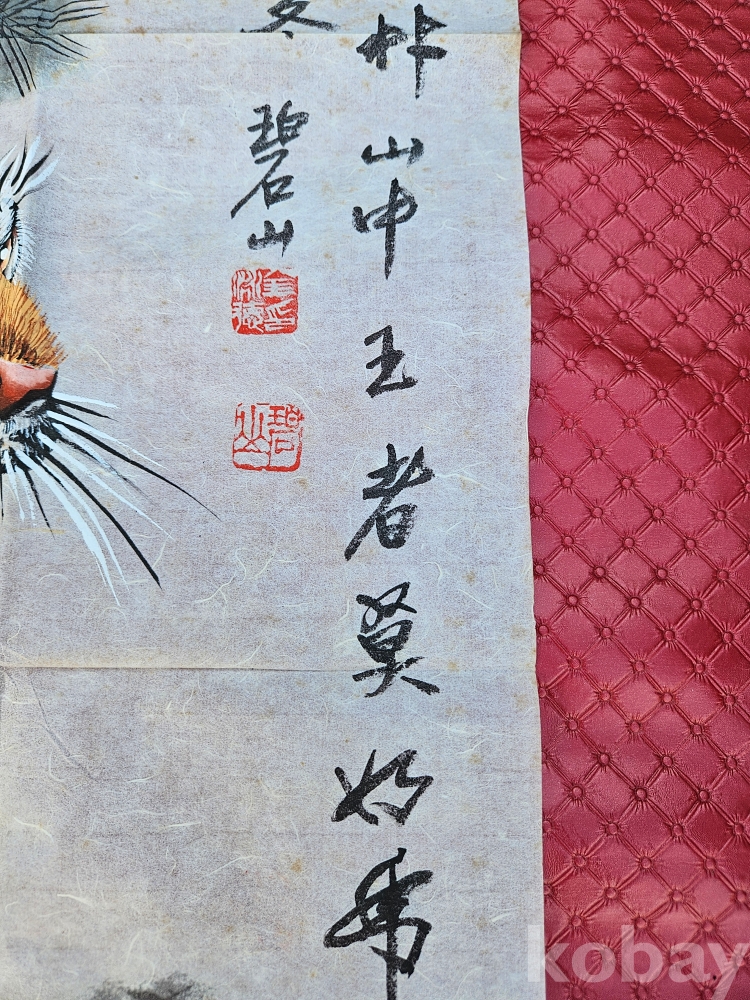 林山中王者莫如虎
冬 碧山
碧山
kobay